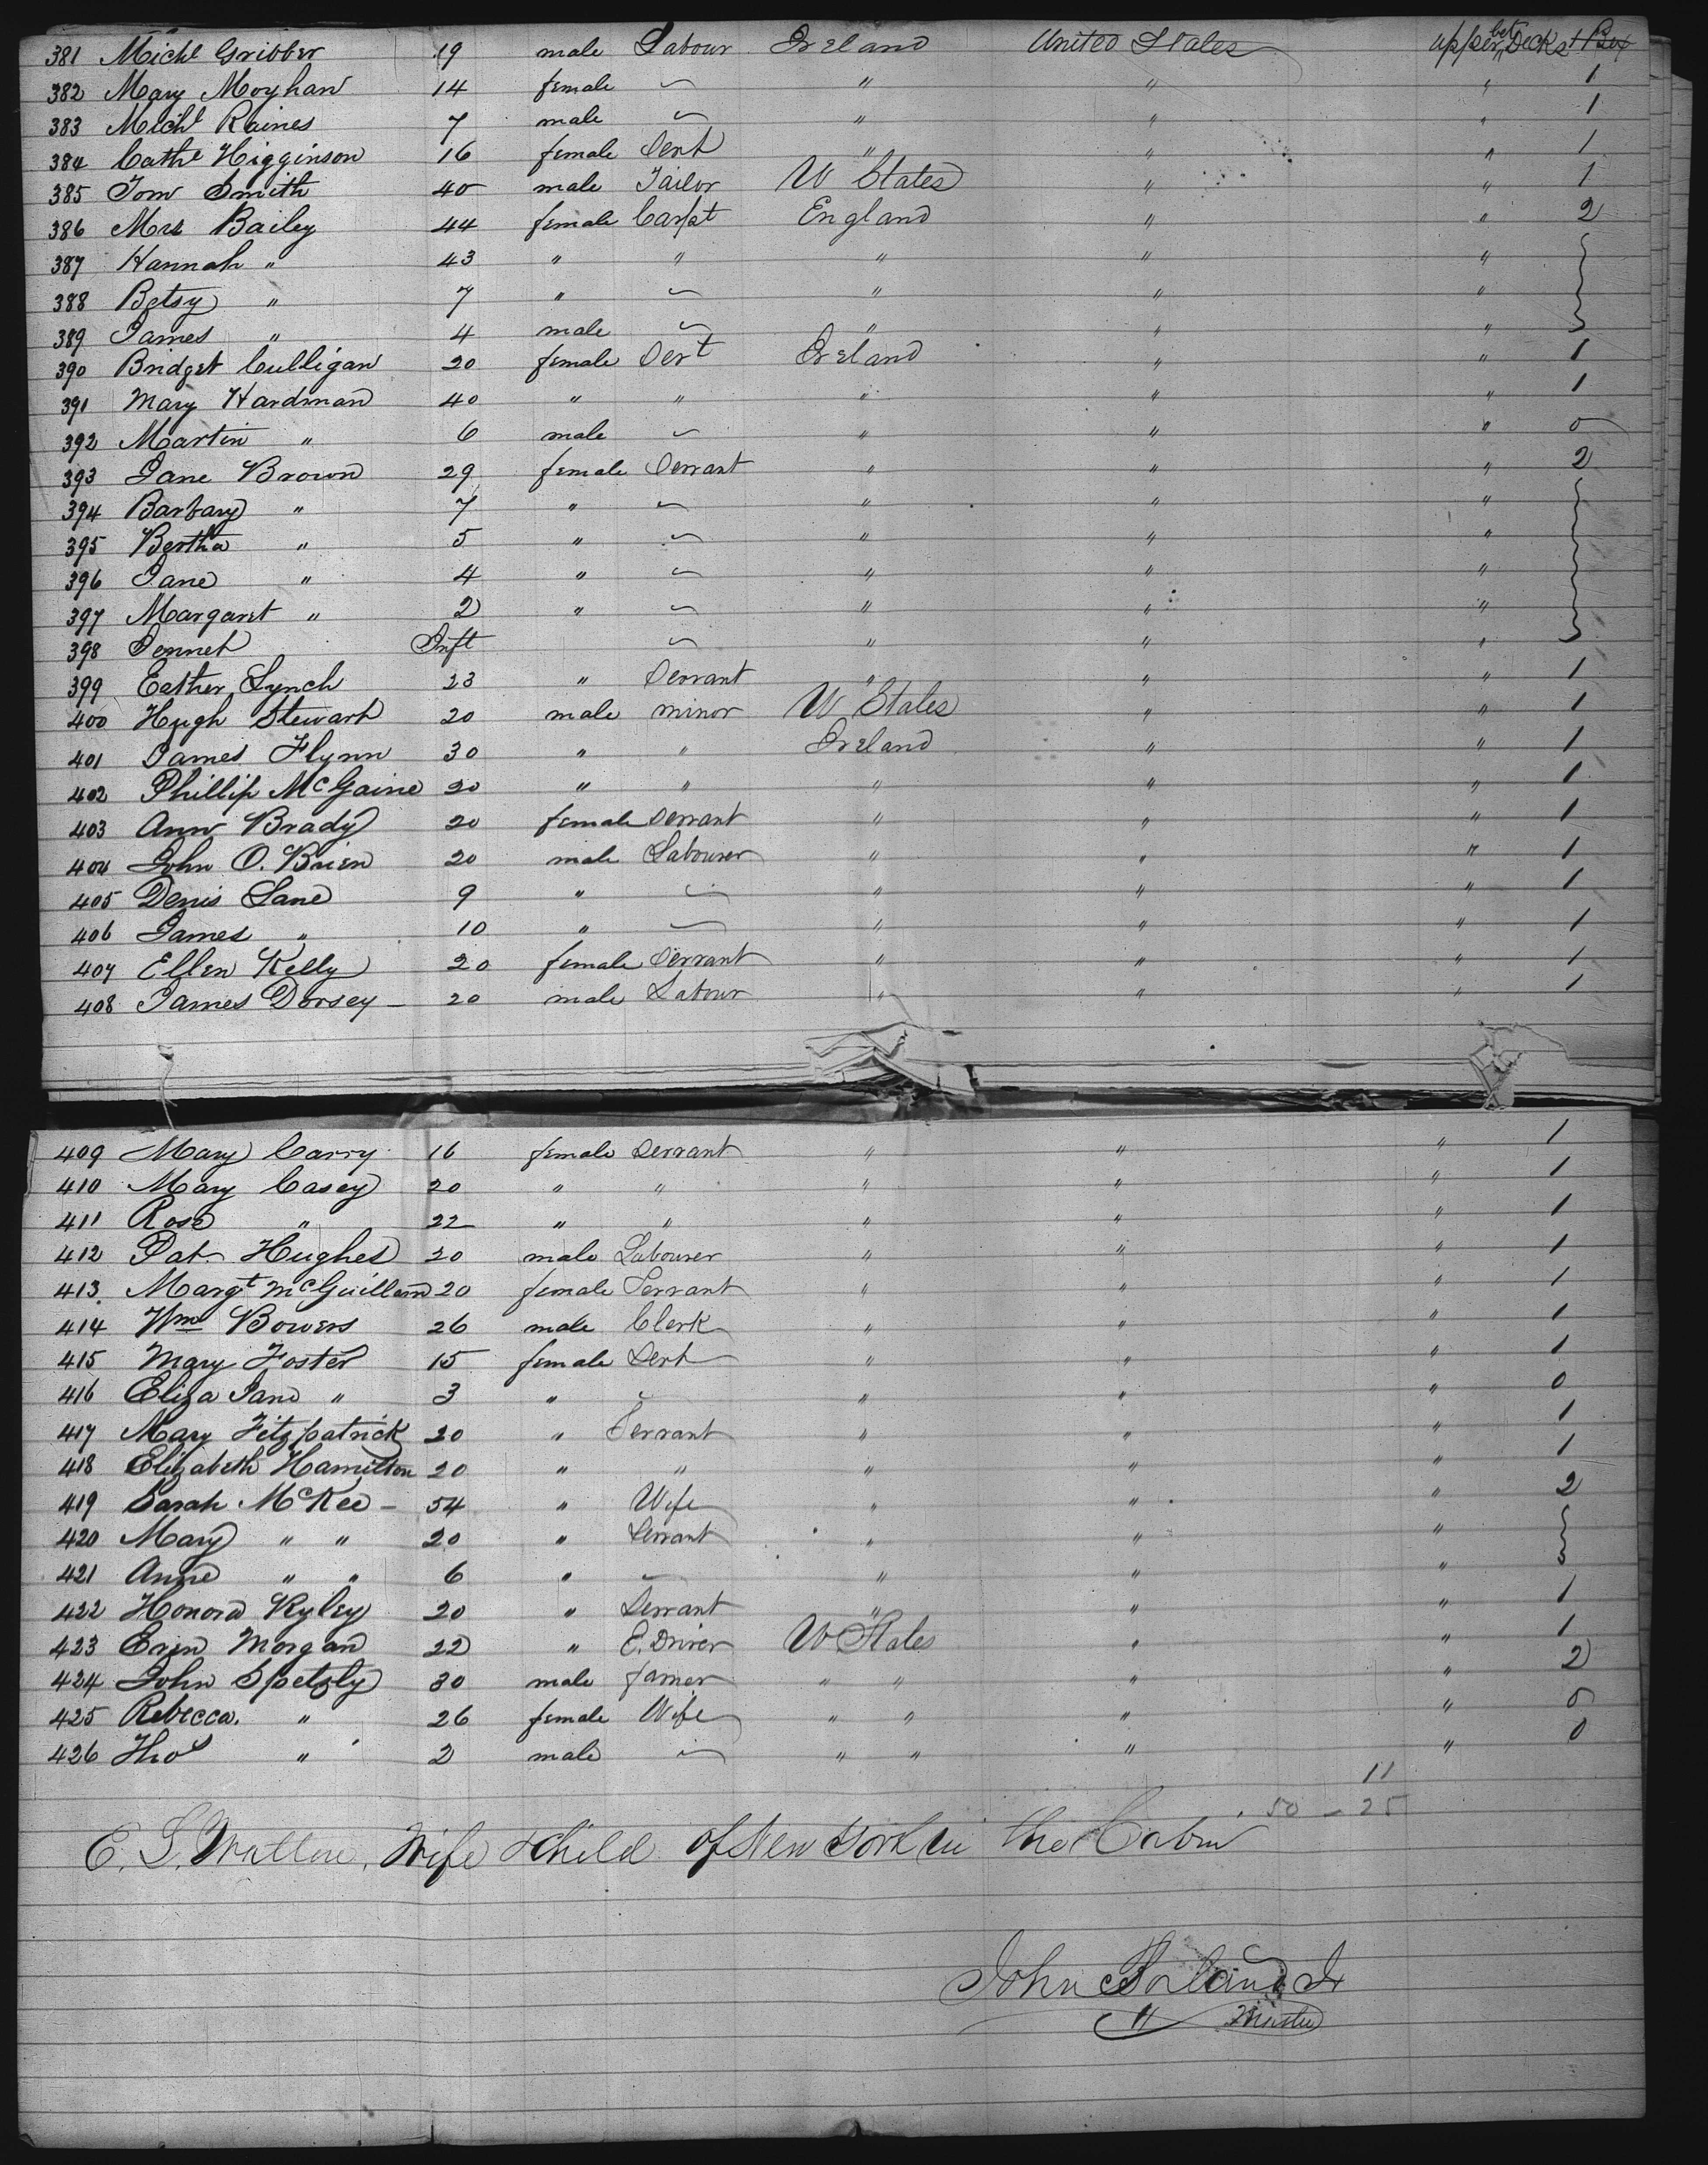 381 Michl Gribber 19 male Labour Ireland United States upper bet Decks 1 Box
382 Mary Moyhan 14 female ~ " " " 1
383 Michl Raines 7 male ~ " " " 1
384 Cathe Higginson 16 female Sert " " " 1
385 Tom Smith 40 male Tailor U States " " 1
386 Mrs Bailey 44 female Carpt England " " 2
387 Hannah " 43 " " " " "
388 Betsy " 7 " ~ " " "
389 James " 4 male ~ " " "
390 Bridget Culligan 20 female Sert Ireland " " 1
391 Mary Hardman 40 " " " " " 1
392 Martin " 6 male ~ " " " 0
393 Jane Brown 29 female Servant " " " 2
394 Barbary " 7 " ~ " " "
395 Bertha " 5 " ~ " " "
396 Jane " 4 " ~ " " "
397 Margaret " 2 " ~ " " "
398 Jennet Inft ~ " " "
399 Esther Lynch 23 " Servant " " " 1
400 Hugh Stewart 20 male minor U States " " 1
401 James Flynn 30 " " Ireland " " 1
402 Phillip McGaine 20 " " " " " 1
403 Ann Brady 20 female Servant " " " 1
404 John O. Brien 20 male Labourer " " " 1
405 Denis Lane 9 " ~ " " " 1
406 James " 10 " ~ " " " 1
407 Ellen Kelly 20 female Servant " " " 1
408 James Dorsey - 20 male Labour " " " 1
409 Mary Carry 16 female Servant " " " 1
410 Mary Casey 20 " " " " " 1
411 Rose " 22 " " " " " 1
412 Pat Hughes 20 male Labourer " " " 1
413 Margt McGuillam 20 female Servant " " " 1
414 Wm Bowers 26 male Clerk " " " 1
415 Mary Foster 15 female Sert " " " 1
416 Eliza Jane " 3 " ~ " " " 0
417 Mary Fitzpatrick 20 " Servant " " " 1
418 Elizabeth Hamilton 20 " " " " " 1
419 Sarah McKee - 54 " Wife " " " 2
420 Mary " " 20 " Servant " " "
421 Anne " " 6 " ~ " " "
422 Honora Ryley 20 " Servant " " " 1
423 Even Morgan 22 " E. Driver U States " " 1
424 John Spetzly 30 male farmer " " " " 2
425 Rebecca " 26 female Wife " " " " 0
426 Thos " 2 male ~ " " " " 0
11
50 - 25
E. S. Wife & Child of New York in the Cabin
John Jr
Master